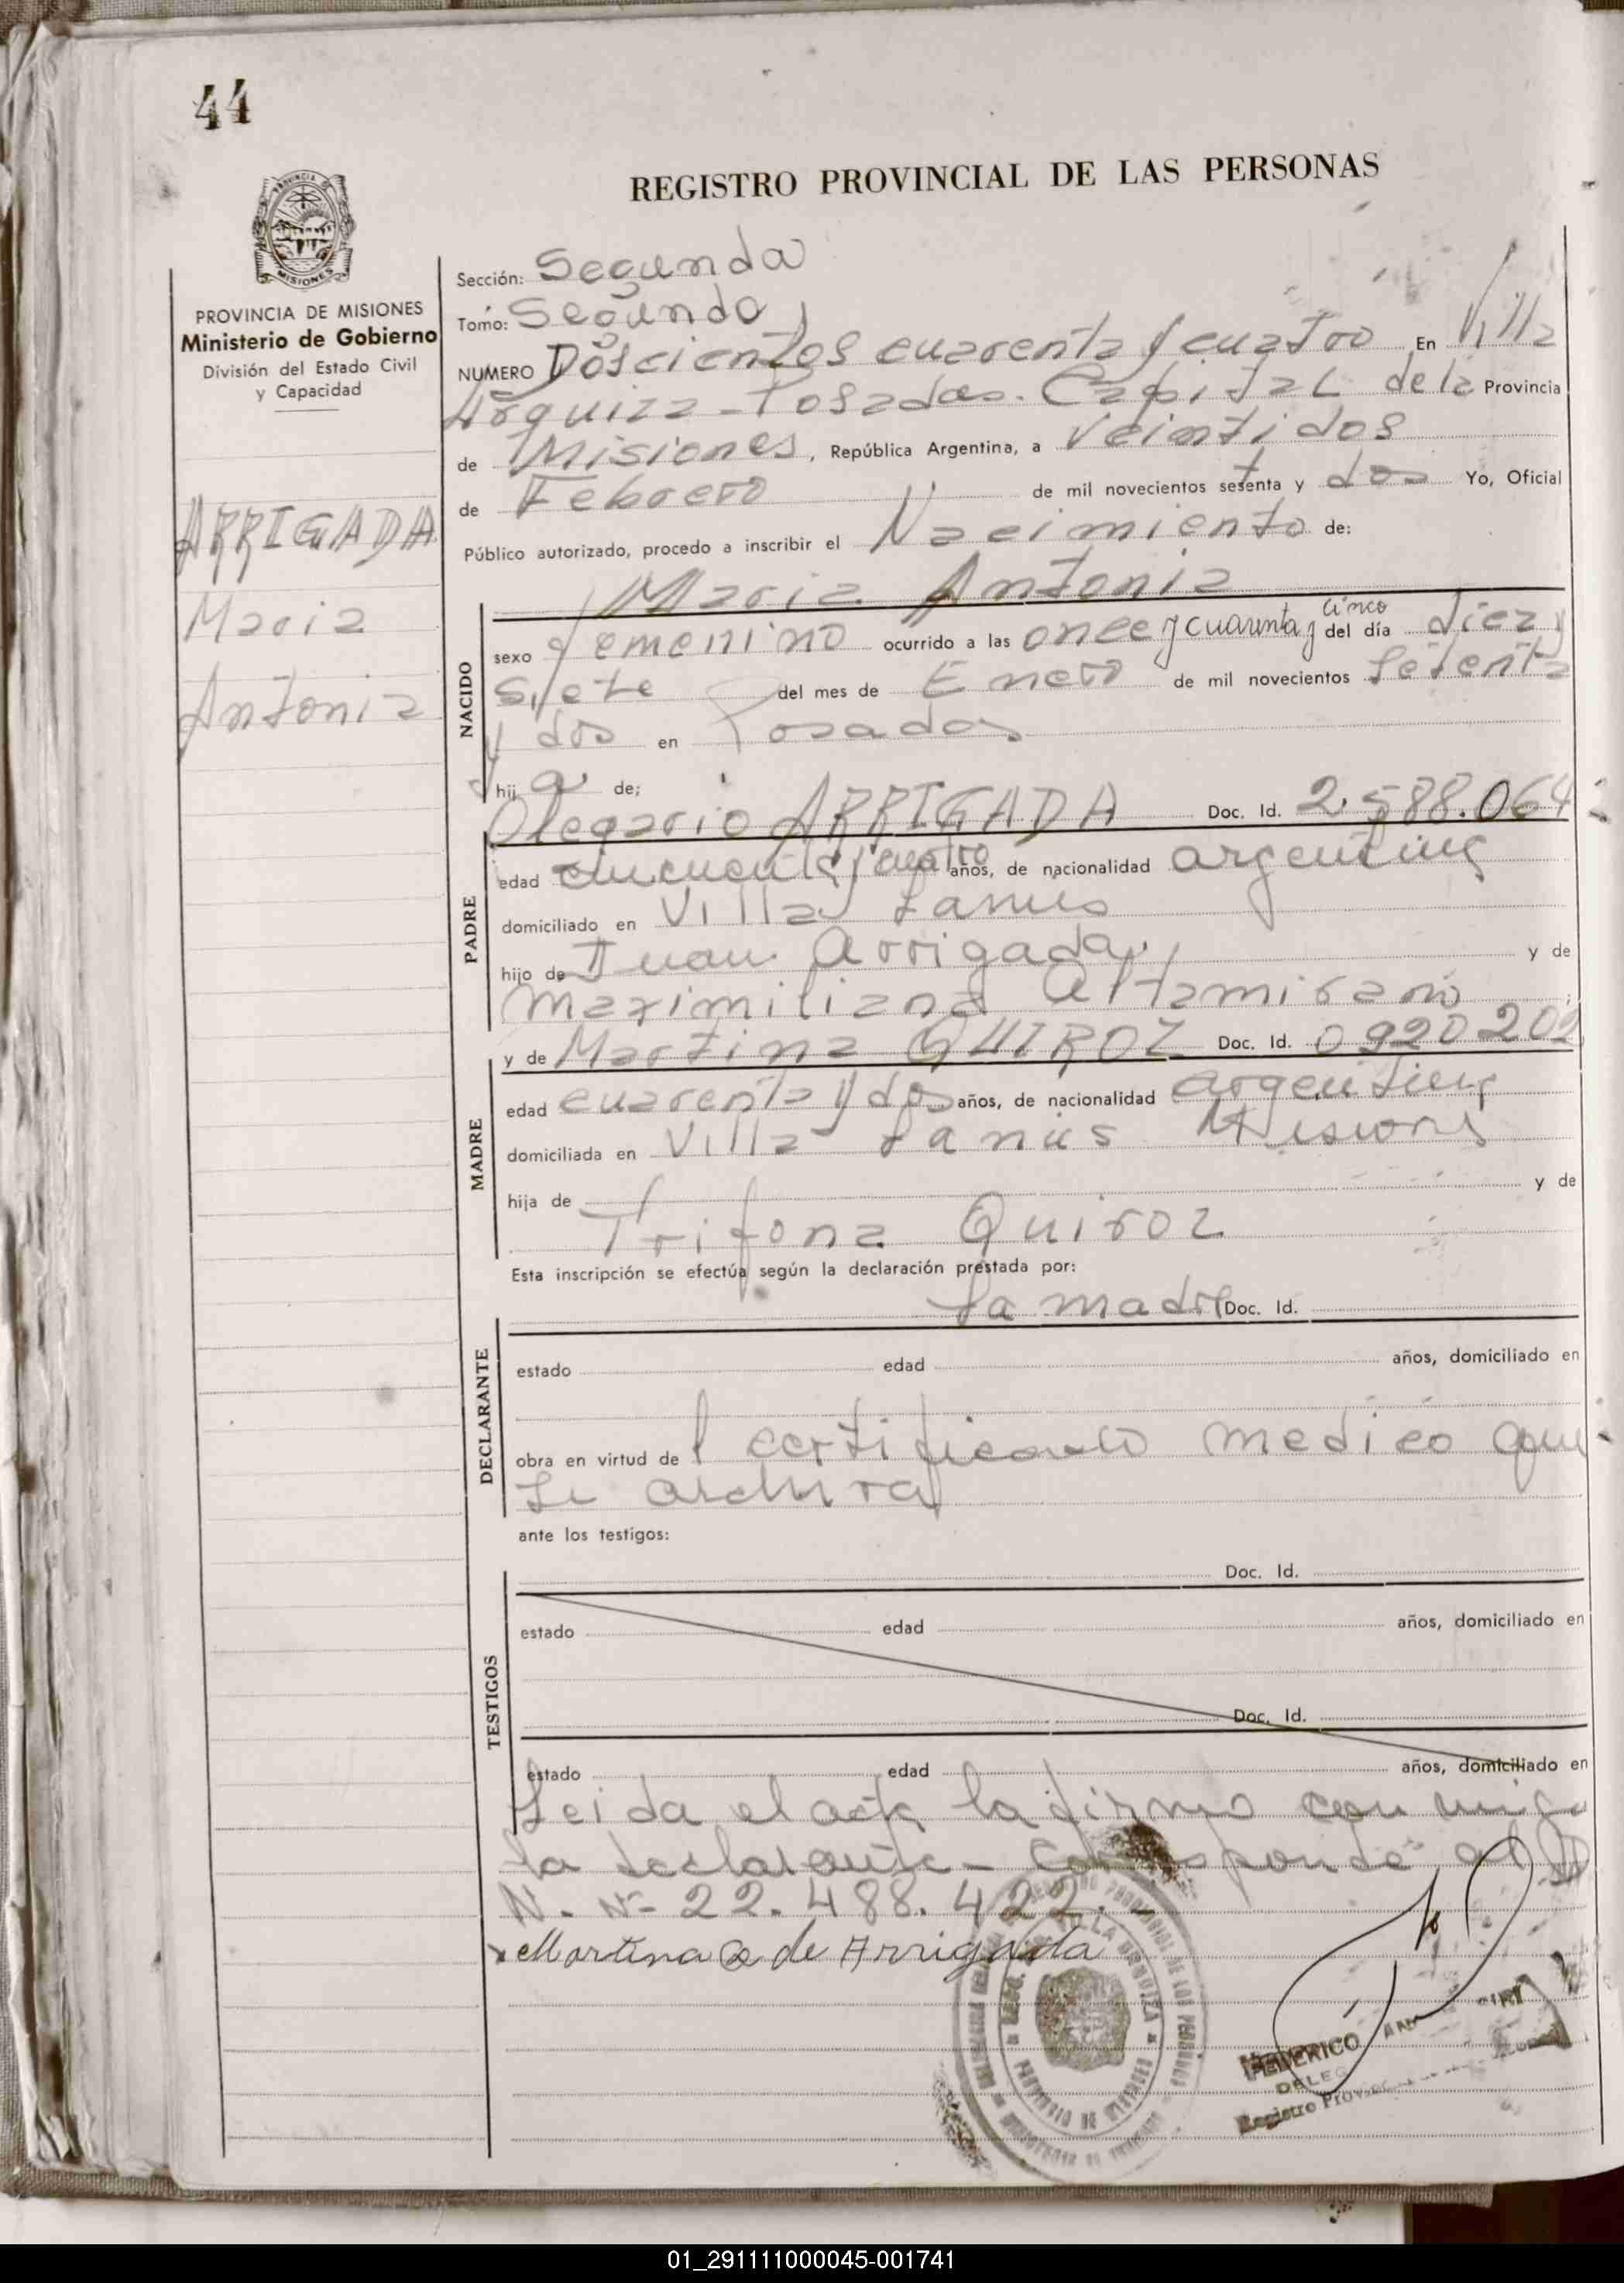 44
REGISTRO PROVINCIAL DE LAS PERSONAS
PROVINCIA DE MISIONES
Ministerio de Gobierno
División del Estado Civil
y Capacidad
ARRIGADA
Maria
Antonia
Sección: Segunda
Tomo: Segundo
NUMERO Doscientos cuarenta y cuatro En Villa
Urquiza - Posadas. Capital de la Provincia
de Misiones, República Argentina, a Veintidos
de Febrero de mil novecientos setenta y dos Yo, Oficial
Público autorizado, procedo a inscribir el Nacimiento de:
Maria Antonia
NACIDO
sexo femenino ocurrido a las once y cuarenta y cinco del día diez y
siete del mes de Enero de mil novecientos setenta
y dos en Posadas
hija de;
Olegario ARRIGADA Doc. Id. 2.588.064
PADRE
edad cincuenta y cuatro años, de nacionalidad argentina
domiciliado en Villa Lanus
hijo de Juan Arrigada y de
Maximiliana Altamirano
y de Martina QUIROZ Doc. Id. 0920202
MADRE
edad cuarenta y dos años, de nacionalidad argentina
domiciliada en Villa Lanus Misiones
hija de y de
Trifona Quiroz
Esta inscripción se efectúa según la declaración prestada por:
La madre Doc. Id.
DECLARANTE
estado edad años, domiciliado en
obra en virtud del certificado medico que
se archiva
ante los testigos:
Doc. Id.
TESTIGOS
estado edad años, domiciliado en
Doc. Id.
estado edad años, domiciliado en
Leida el acta la firma con migo
la declarante - Corresponde al D
N. Nº 22.488.422.
Martina Q de Arrigada
VILLA URQUIZA
PROVINCIA DE MISIONES
FEDERICO
DELEG
Registro Prov
01_291111000045-001741